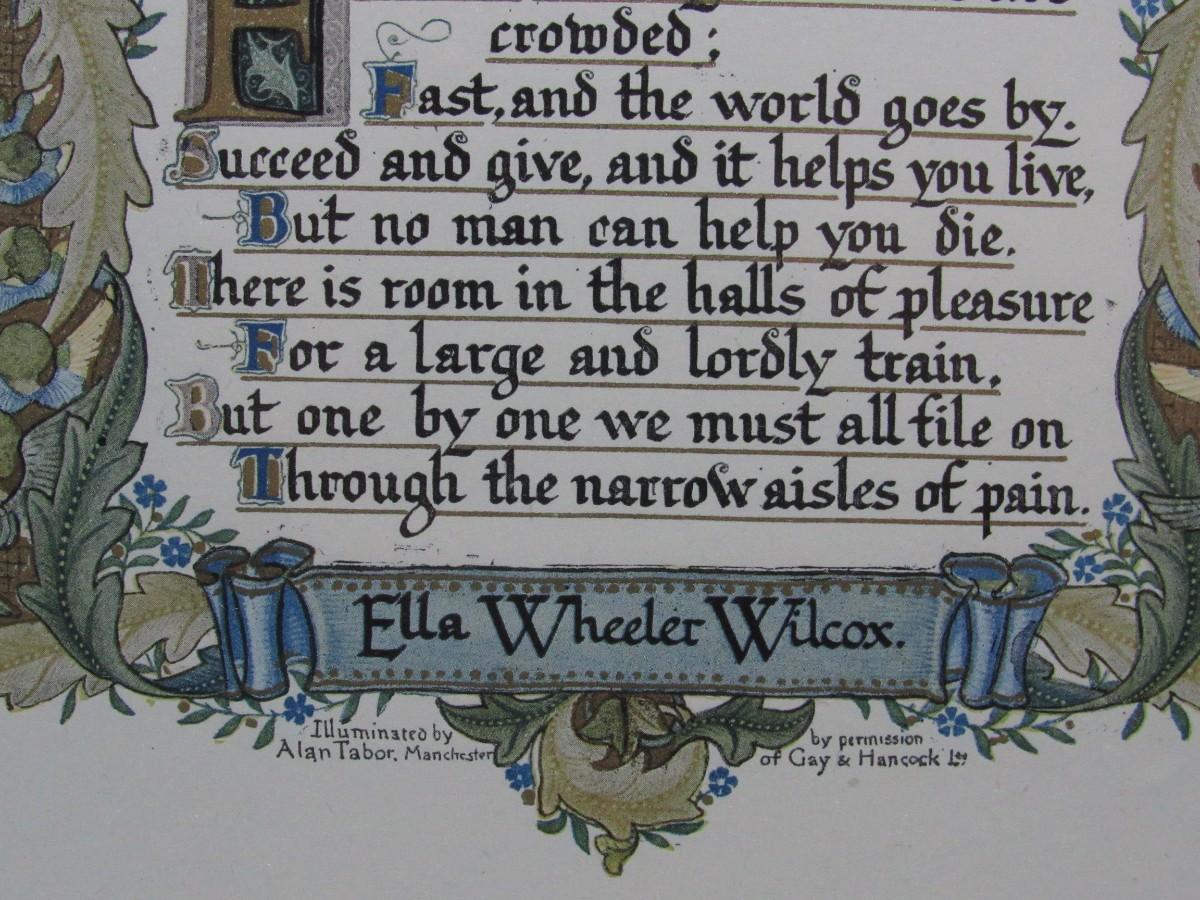 crowded;
Fast, and the world goes by.
Succeed and give, and it helps you live,
But no man can help you die.
There is room in the halls of pleasure
For a large and lordly train,
But one by one we must all file on
Through the narrow aisles of pain.
Ella Wheeler Wilcox.
Illuminated by
Alan Tabor, Manchester
by permission
of Gay & Hancock Ltd